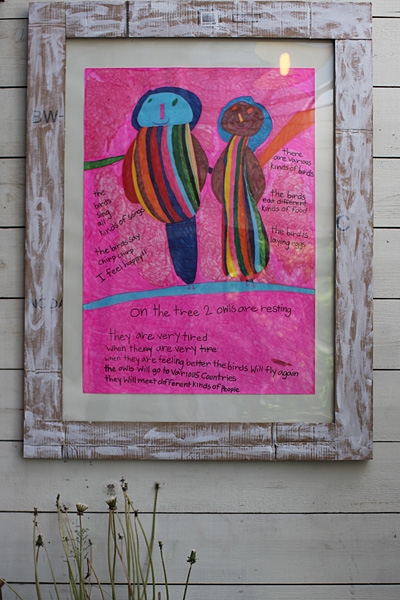 BW-
there
are various
kinds of birds
the birds
eat different
kinds of food!
the bird is
laying eggs
the
birds
sing
all
kinds of songs
the birds say
chirp chirp
I feel happy!!
on the tree 2 owls are resting
they are very tired
when they are very tire
when they are feeling better the birds will fly again
the owls will go to various countries
they will meet different kinds of people